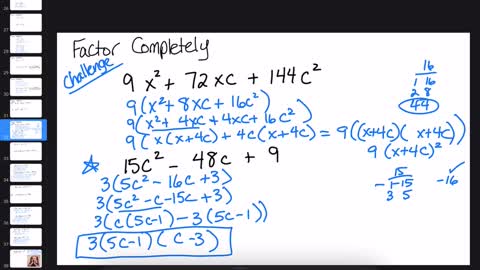 Factor Completely
challenge
9x² + 72xc + 144c²
9(x² + 8xc + 16c²)
9(x² + 4xc + 4xc + 16c²)
9(x(x+4c) + 4c(x+4c)) = 9((x+4c)(x+4c))
9(x+4c)²
16
1 16
2 8
44
15c² - 48c + 9
3(5c² - 16c + 3)
3(5c² - c - 15c + 3)
3(c(5c-1) - 3(5c-1))
3(5c-1)(c-3)
15
- 1 -15 -16 ✓
3 5